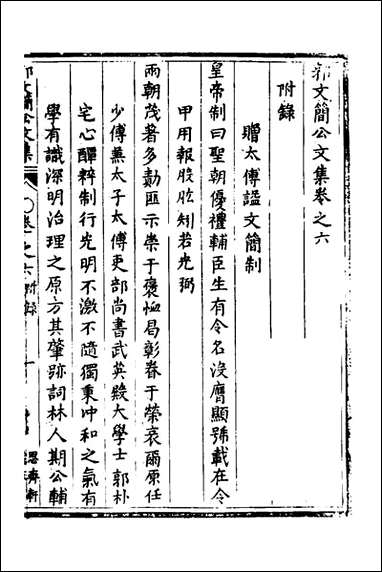 郭文簡公文集卷之六
附錄
贈太傅謚文簡制
皇帝制曰聖朝優禮輔臣生有令名沒膺顯號載在令
甲用報股肱矧若光弼
兩朝茂著多勛匪示崇于褒恤曷彰眷于榮哀爾原任
少傅蕪太子太傅吏部尚書武英殿大學士郭朴
宅心醇粹制行光明不激不隨獨秉冲和之氣有
學有識深明治理之原方其肇跡詞林人期公輔
郭文簡公文集
卷之六附錄
一
思齊軒